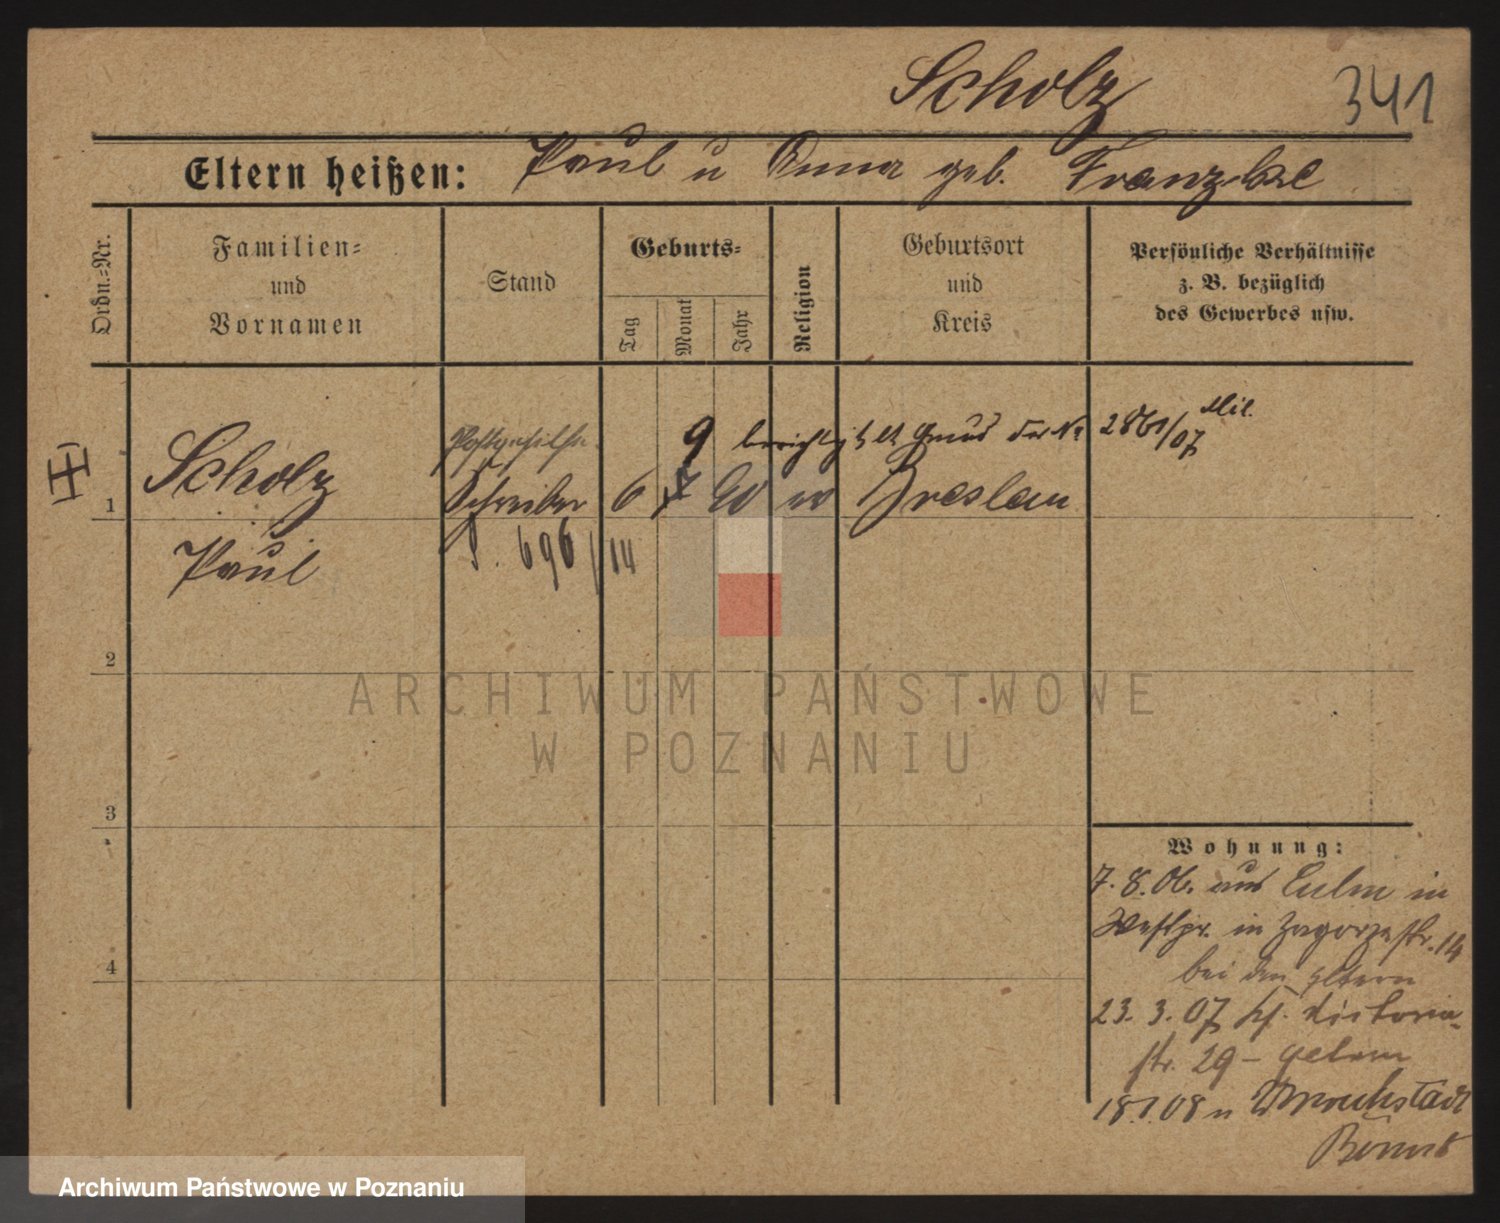 Scholz
341
Eltern heißen: Paul u Anna geb. Franzke
Ordn.-Nr.
Familien-
und
Vornamen
Stand
Geburts-
Tag
Monat
Jahr
Religion
Geburtsort
und
Kreis
Persönliche Verhältnisse
z. B. bezüglich
des Gewerbes usw.
Postgehilfe
9 berichtigt lt 2861/07 Mil.
1 Scholz Schreiber 6 7 90 Breslau
Paul
P. 696/14
2
3
4
Wohnung:
7. 8. 06. aus Culm in
Westpr. in Zagorzestr. 14
bei den Eltern
23. 3. 07 Victoria-
str. 29 - Eltern
18.1.08 n Wronkestadt
ARCHIWUM PAŃSTWOWE
W POZNANIU
Archiwum Państwowe w Poznaniu